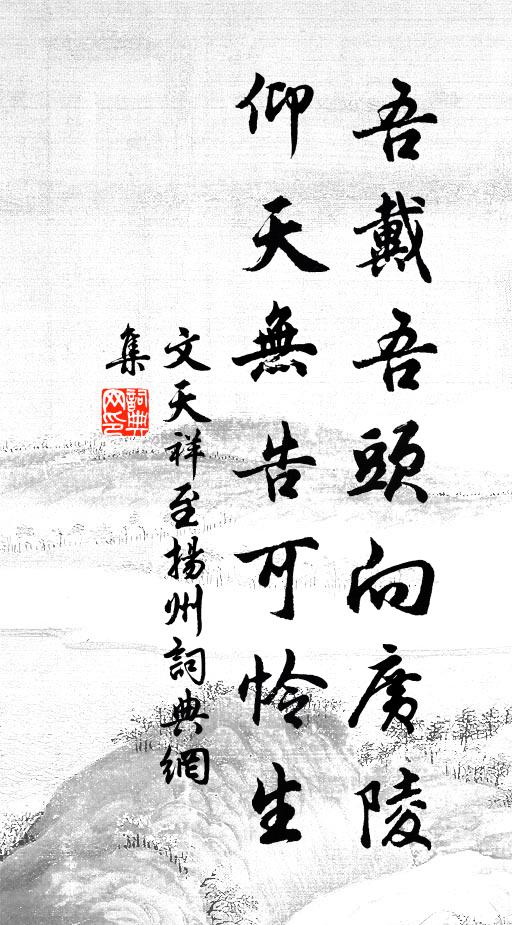 吾戴吾頭向廣陵
仰天無告可怜生
文天祥至揚州詞典網
集
詞典
网印